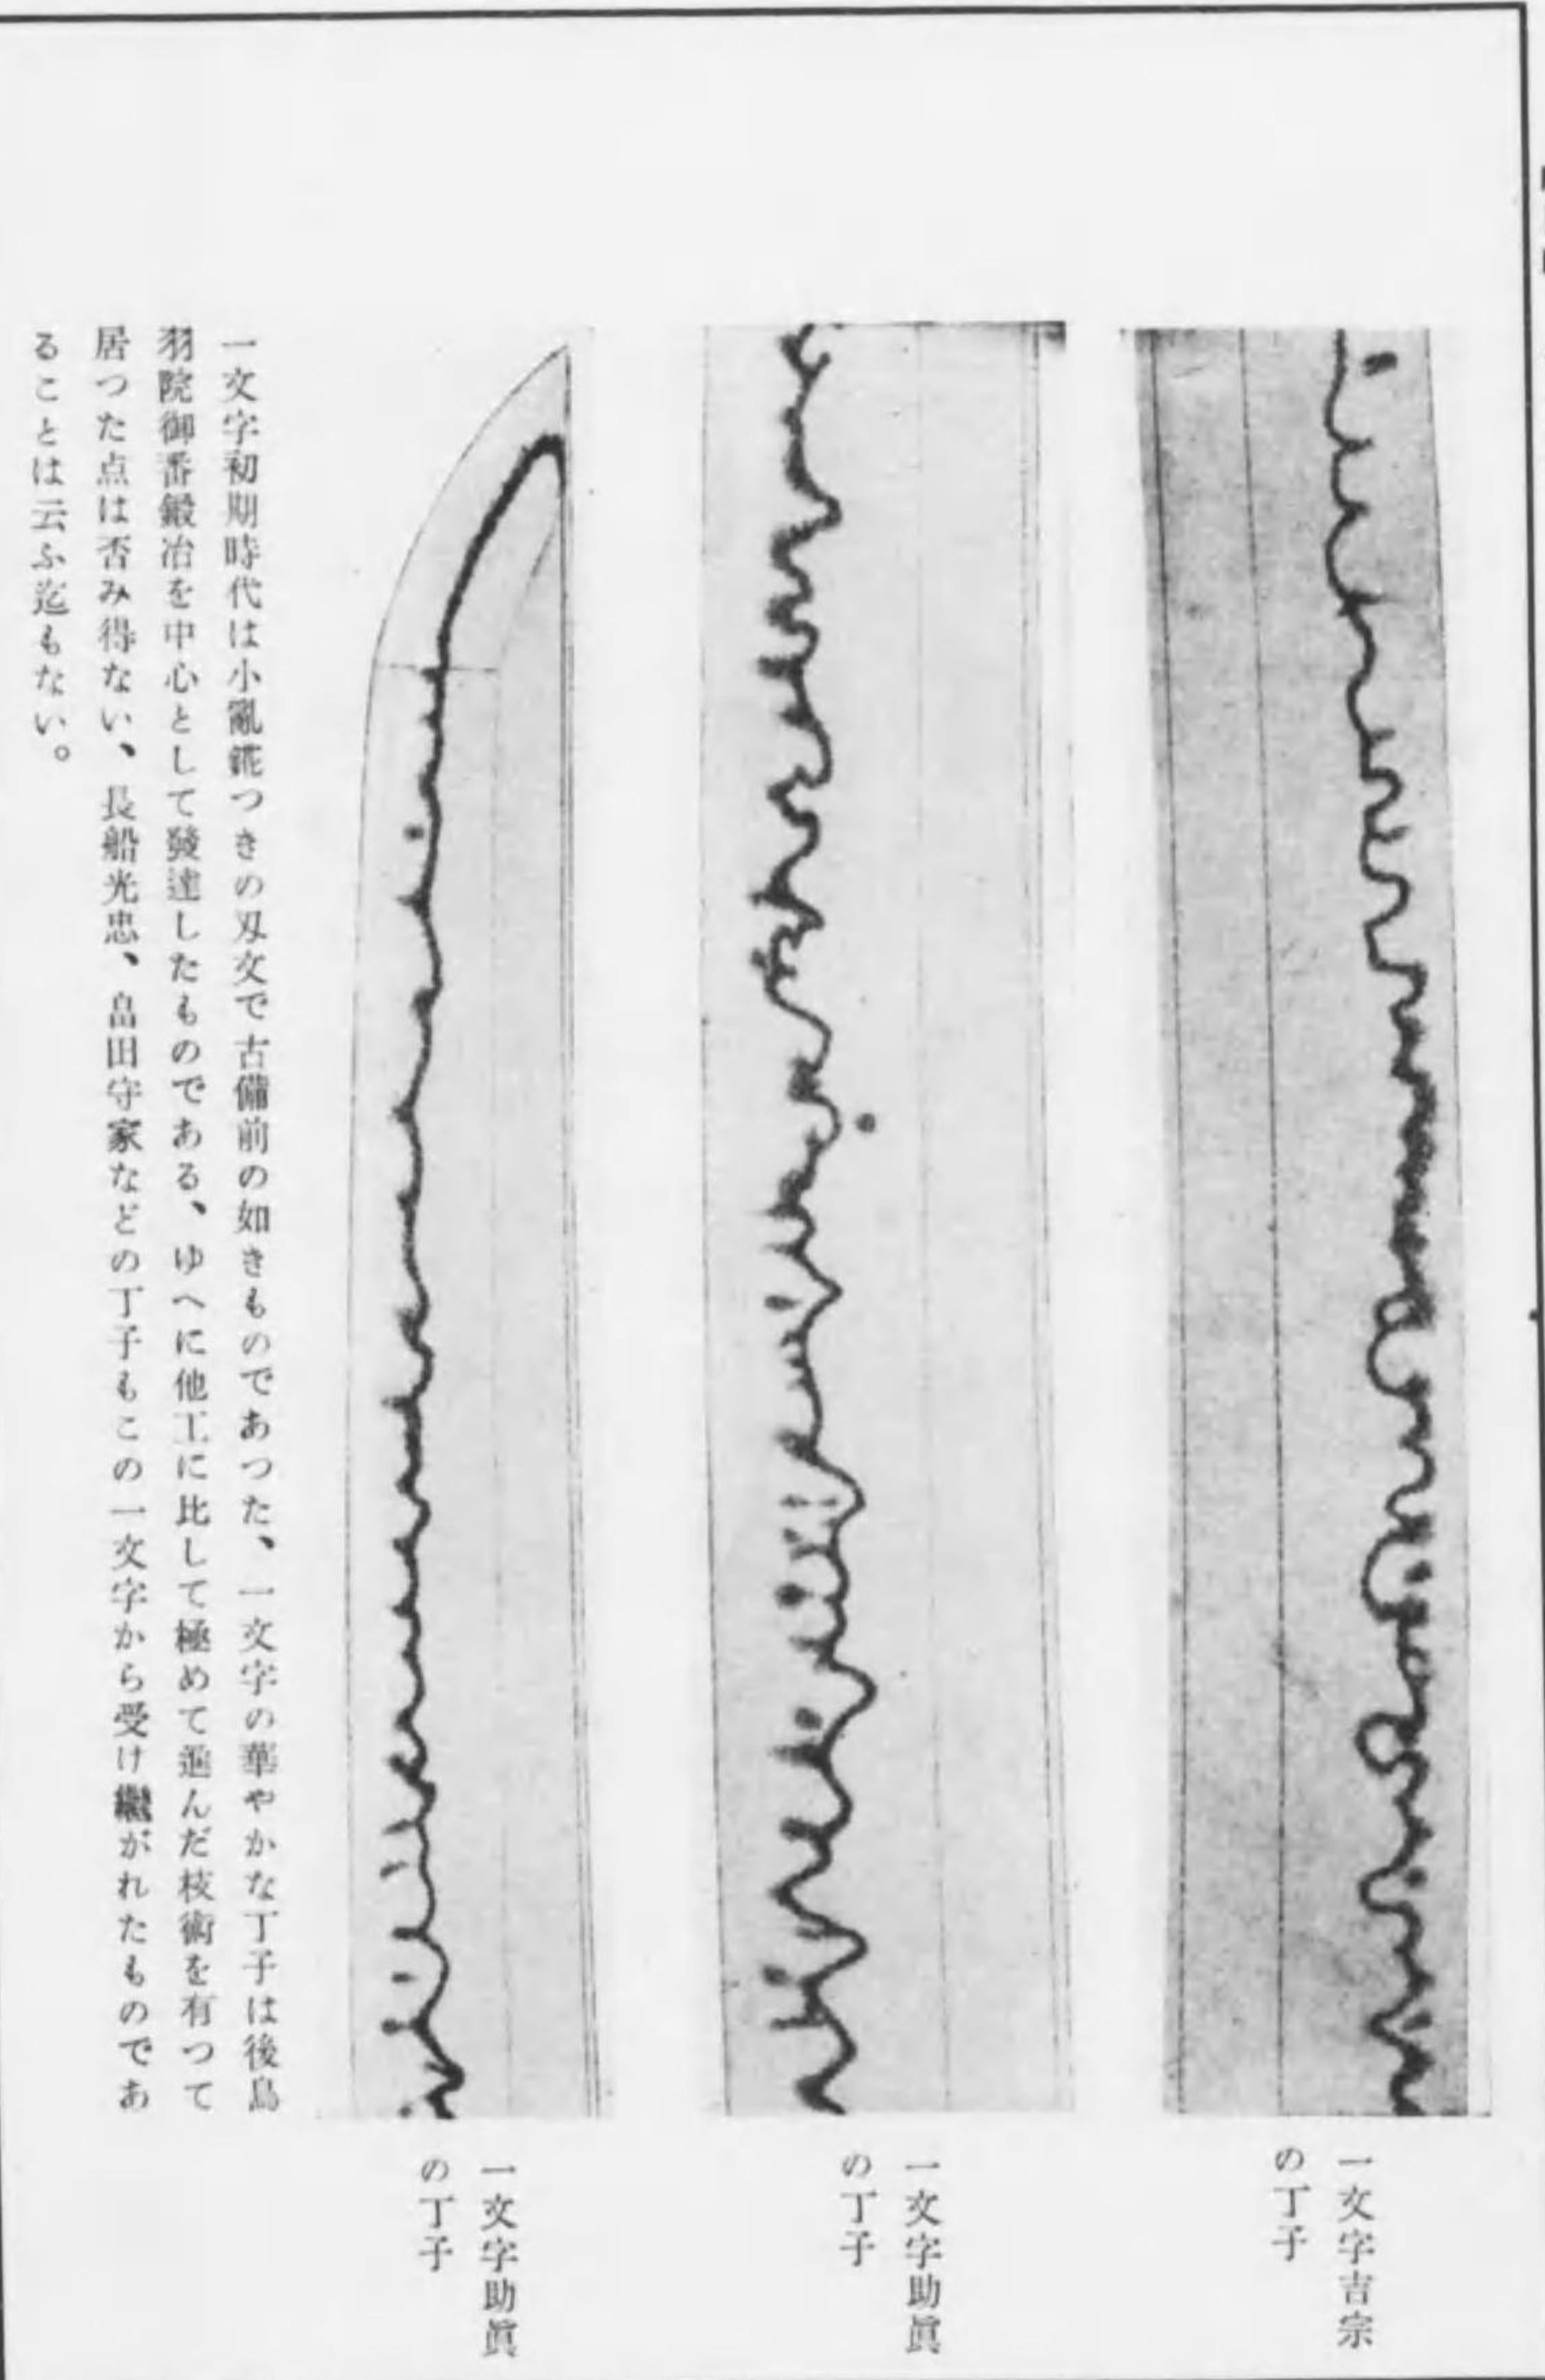 一文字吉宗
の丁子
一文字助眞
の丁子
一文字助眞
の丁子
一文字初期時代は小亂錵つきの刄文で古備前の如きものであつた、一文字の華やかな丁子は後鳥
羽院御番鍛冶を中心として發達したものである、ゆへに他工に比して極めて進んだ枝術を有つて
居つた点は否み得ない、長船光忠、畠田守家などの丁子もこの一文字から受け繼がれたものであ
ることは云ふ迄もない。